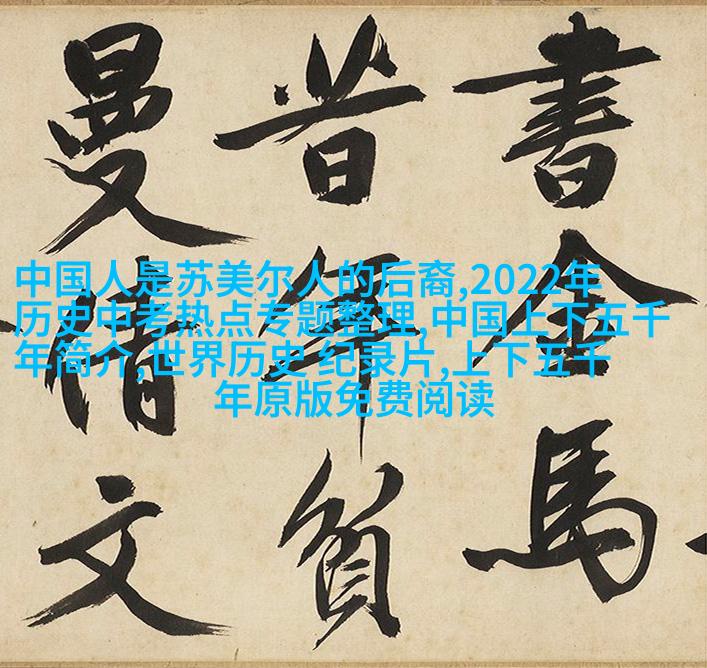 中国人是苏美尔人的后裔,2022年
历史中考热点专题整理,中国上下五千
年简介,世界历史 纪录片,上下五千
年原版免费阅读
書金馬
昔年貧
曼倩文